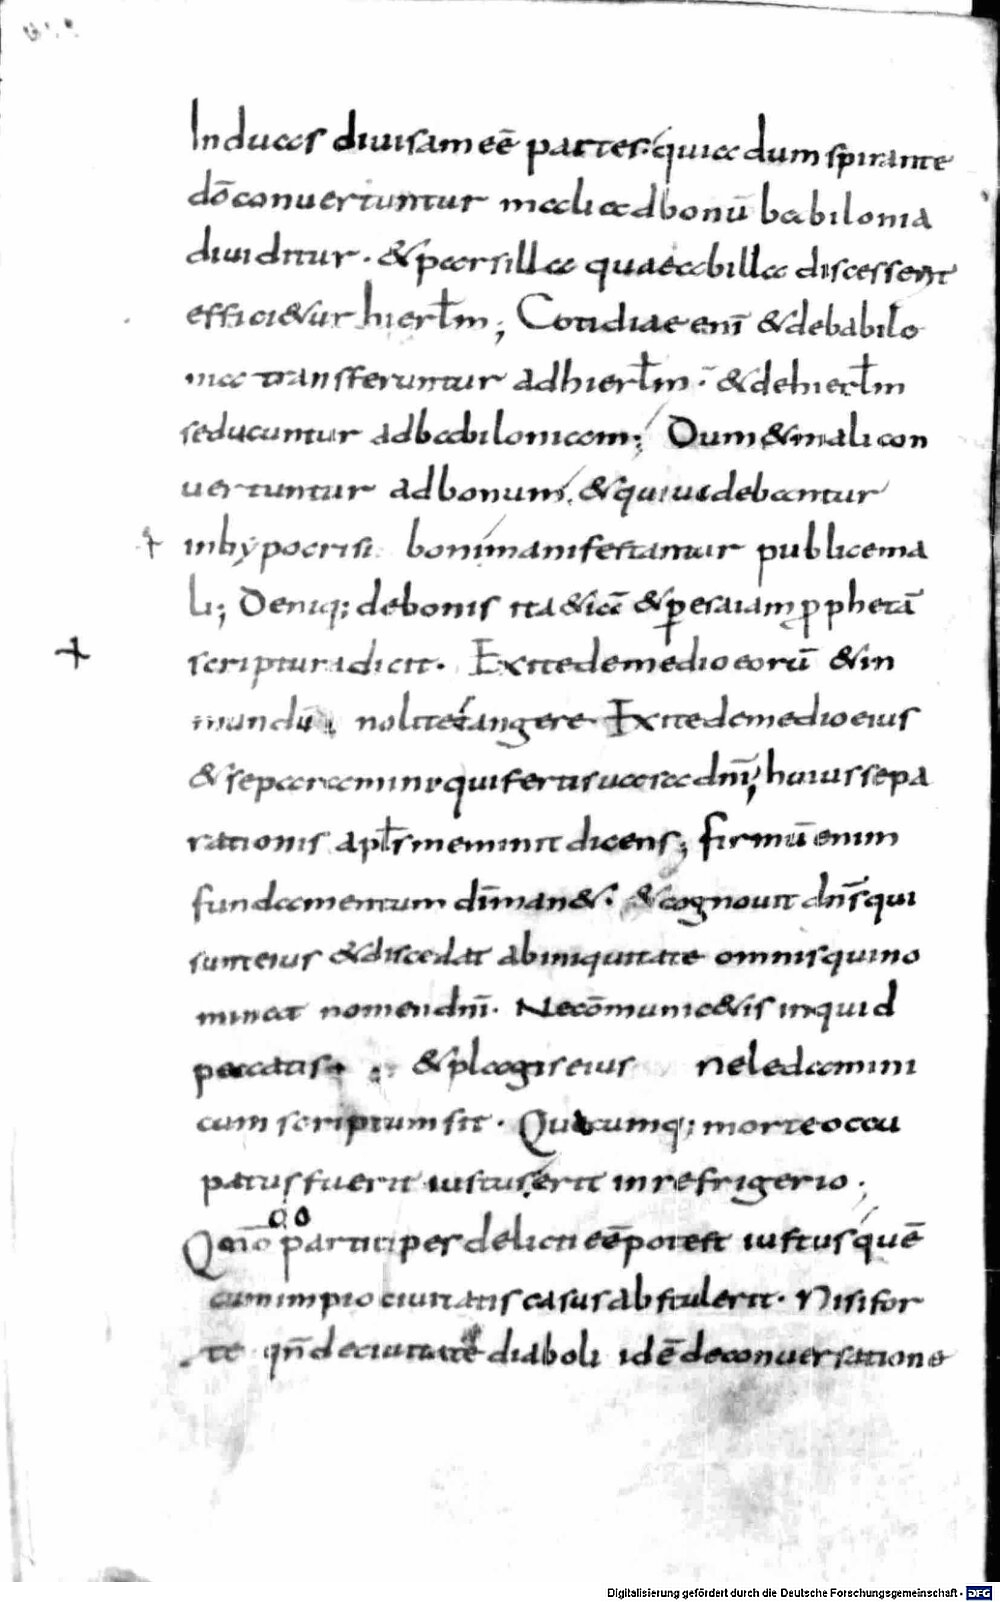 In duas diuisam eē partes quia dum spirante
dō conuertuntur mali ad bonū babilonia
diuiditur. & pars illa quae ab illa discessent
effici&ur hierłm; Cotidiae enī & debabilo
nia transferuntur ad hierłm. & de hierłm
seducuntur ad babiloniam; Dum & mali con
uertuntur ad bonum. & qui uidebantur
in hypocrisi boni manifestantur publice ma
li; Deniq; de bonis ita & icē & per esaiam pphetā
scriptura dicit. Exite de medio eorū & in
mundū nolite tangere Exite de medio eius
& separamini qui fertis uasa dnī; huius sepa
rationis apłs meminit dicens; firmū enim
fundamentum dī man&. & cognouit dns̄ qui
sunt eius & discedat ab iniquitate omnis qui no
minat nomen dnī. Ne cōmunic&is inquid
peccatis & plagis eius ne ledamini
cum scriptum sit. Quacumq; morte occu
patus fuerit iustus erit in refrigerio.
Qmō particeps delicti eē potest iustus quē
cum impio ciuitatis casus abstulerit. Nisi for
te qn̄ de ciuitate diaboli idē de conuersatione
Digitalisierung gefördert durch die Deutsche Forschungsgemeinschaft - DFG